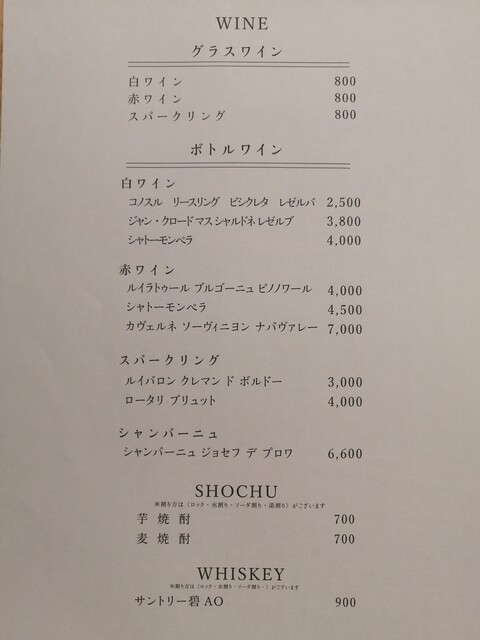 WINE
グラスワイン
白ワイン 800
赤ワイン 800
スパークリング 800
ボトルワイン
白ワイン
コノスル リースリング ビシクレタ レゼルバ 2,500
ジャン・クロード マス シャルドネ レゼルブ 3,800
シャトーモンペラ 4,000
赤ワイン
ルイラトゥール ブルゴーニュ ピノノワール 4,000
シャトーモンペラ 4,500
カヴェルネ ソーヴィニヨン ナパヴァレー 7,000
スパークリング
ルイバロン クレマン ド ボルドー 3,000
ロータリ ブリュット 4,000
シャンパーニュ
シャンパーニュ ジョセフ デ プロワ 6,600
SHOCHU
※割り方は（ロック・水割り・ソーダ割り・湯割り）がございます
芋焼酎 700
麦焼酎 700
WHISKEY
※割り方は（ロック・水割り・ソーダ割り・）がございます
サントリー碧AO 900